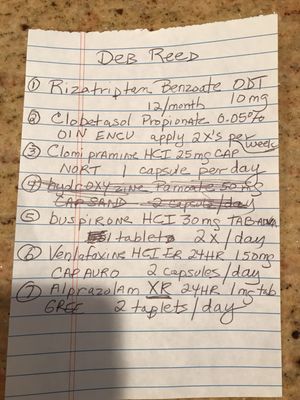 Deb Reed
① Rizatriptan Benzoate ODT
12/month 10mg
② Clobetasol Propionate 0.05%
OIN ENCU apply 2X's per week
③ Clomipramine HCI 25mg CAP
NORT 1 capsule per day
④ hydroxyzine Pamoate 50 mg
CAP SAND 2 capsule/day
⑤ buspirone HCI 30mg TAB
1 tablet 2X/day
⑥ Venlafaxine HCI ER 24HR 150mg
CAP AURO 2 capsules/day
⑦ Alprazolam XR 24HR 1mg tab
GREE 2 taplets/day